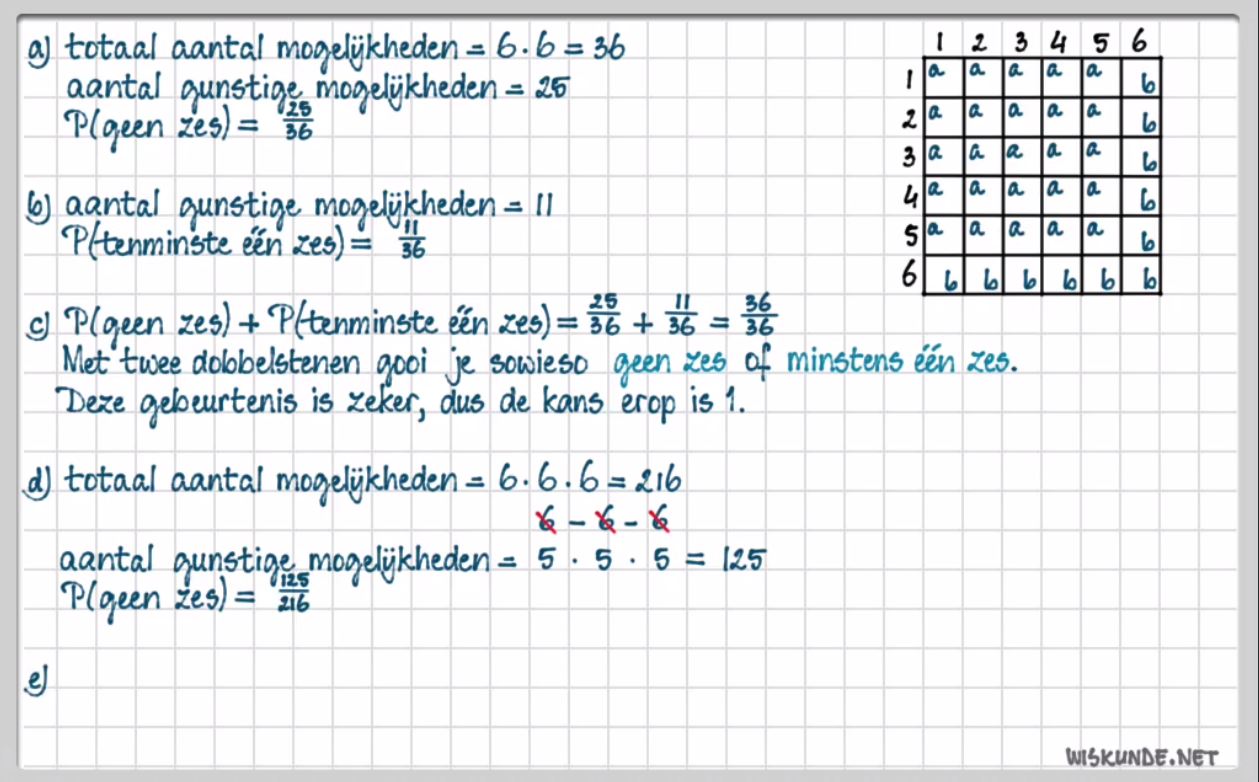 a) totaal aantal mogelijkheden = 6 · 6 = 36
aantal gunstige mogelijkheden = 25
P(geen zes) = 25/36
b) aantal gunstige mogelijkheden = 11
P(tenminste één zes) = 11/36
c) P(geen zes) + P(tenminste één zes) = 25/36 + 11/36 = 36/36
Met twee dobbelstenen gooi je sowieso geen zes of minstens één zes.
Deze gebeurtenis is zeker, dus de kans erop is 1.
d) totaal aantal mogelijkheden = 6 · 6 · 6 = 216
6 - 6 - 6
aantal gunstige mogelijkheden = 5 · 5 · 5 = 125
P(geen zes) = 125/216
e)
1 2 3 4 5 6
1 a a a a a b
2 a a a a a b
3 a a a a a b
4 a a a a a b
5 a a a a a b
6 b b b b b b
WISKUNDE.NET